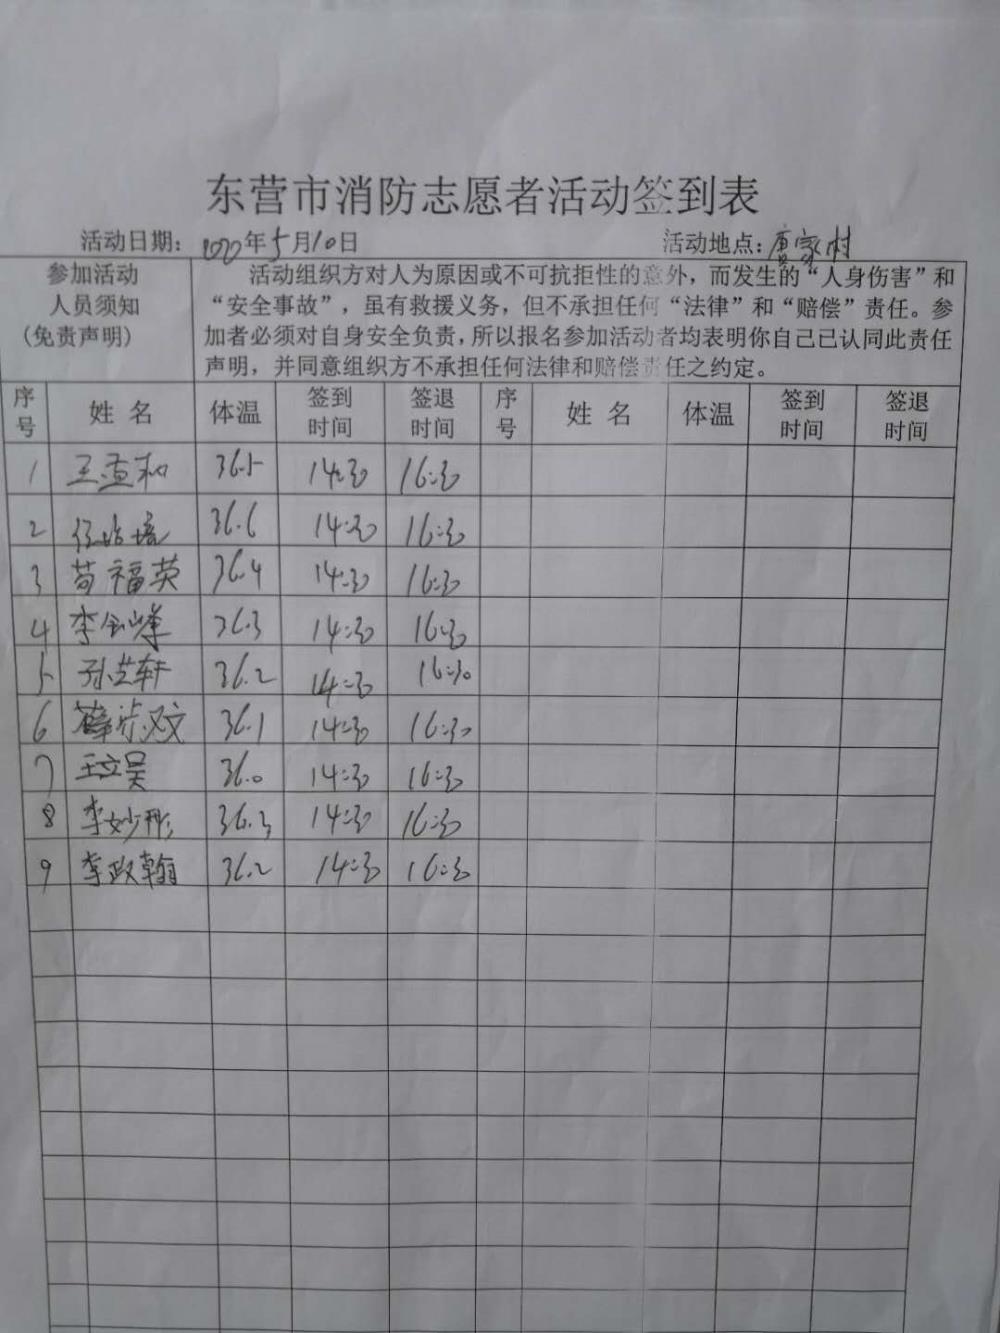 东营市消防志愿者活动签到表
活动日期: 2020年5月10日 活动地点:唐家村
参加活动
人员须知
(免责声明)
活动组织方对人为原因或不可抗拒性的意外，而发生的“人身伤害”和
“安全事故”，虽有救援义务，但不承担任何“法律”和“赔偿”责任。参
加者必须对自身安全负责，所以报名参加活动者均表明你自己已认同此责任
声明，并同意组织方不承担任何法律和赔偿责任之约定。
序号 姓名 体温 签到时间 签退时间 序号 姓名 体温 签到时间 签退时间
1 王 和 36.5 14:30 16:30
2 36.6 14:30 16:30
3 苟福英 36.4 14:30 16:30
4 李 峰 36.3 14:30 16:30
5 孙芷轩 36.2 14:30 16:30
6 薛 文 36.1 14:30 16:30
7 王文昊 36.0 14:30 16:30
8 李妙彤 36.3 14:30 16:30
9 李政翰 36.2 14:30 16:30